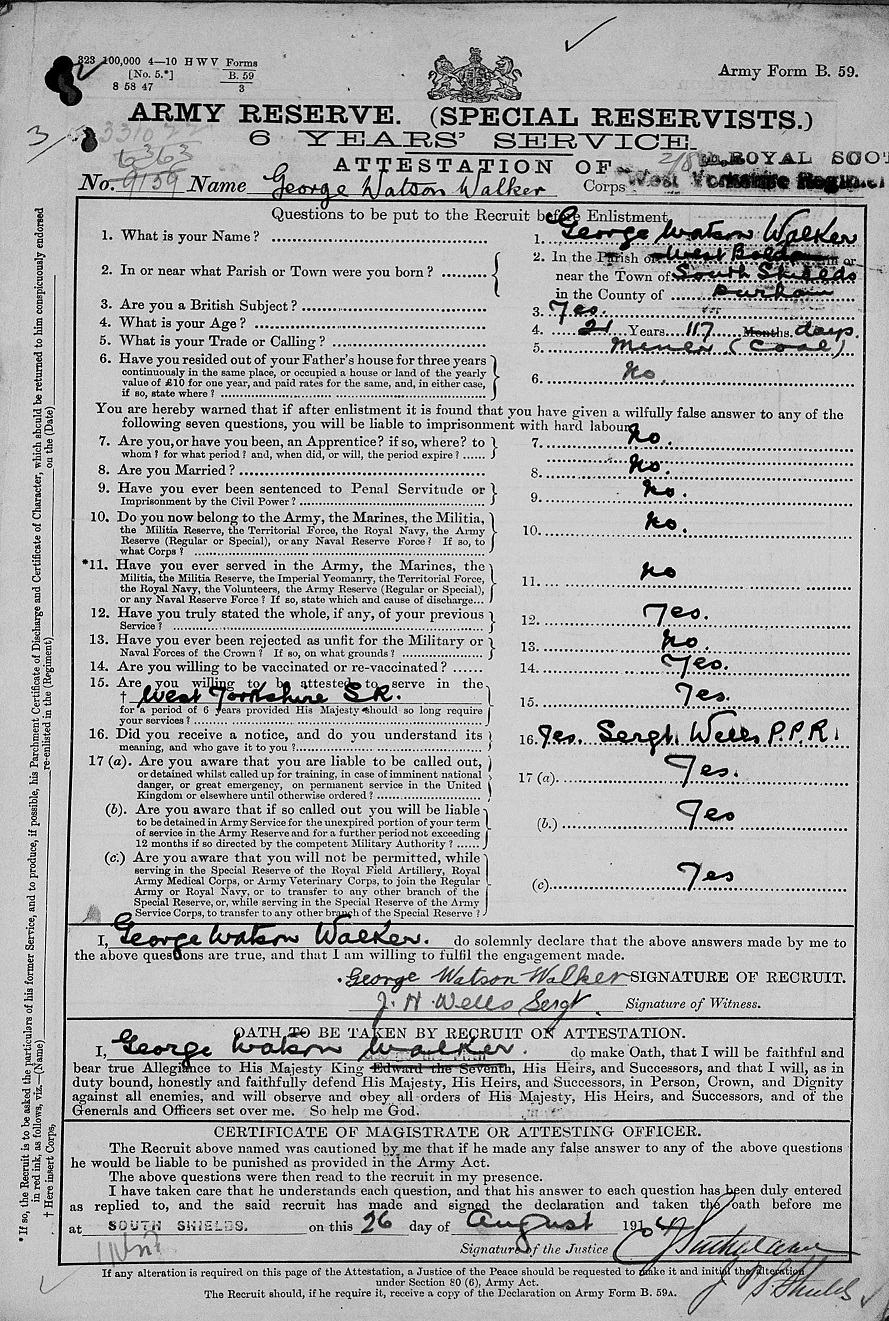 323 100,000 4—10 H W V Forms
[No. 5.*] B. 59
8 58 47 3
Army Form B. 59.
ARMY RESERVE. (SPECIAL RESERVISTS.)
6 YEARS' SERVICE.
ATTESTATION OF
ROYAL SCOT
6363
No. 9159 Name George Watson Walker Corps West Yorkshire Regimen
Questions to be put to the Recruit before Enlistment.
1. What is your Name? 1. George Watson Walker
2. In or near what Parish or Town were you born? 2. In the Parish of West Boldon in or
near the Town of South Shields
in the County of Durham
3. Are you a British Subject? 3. Yes.
4. What is your Age? 4. 21 Years 117 Months. days.
5. What is your Trade or Calling? 5. Miner (Coal)
6. Have you resided out of your Father's house for three years
continuously in the same place, or occupied a house or land of the yearly
value of £10 for one year, and paid rates for the same, and, in either case,
if so, state where? 6. No.
You are hereby warned that if after enlistment it is found that you have given a wilfully false answer to any of the
following seven questions, you will be liable to imprisonment with hard labour.
7. Are you, or have you been, an Apprentice? if so, where? to
whom? for what period? and, when did, or will, the period expire? 7. No.
8. Are you Married? 8. No.
9. Have you ever been sentenced to Penal Servitude or
Imprisonment by the Civil Power? 9. No.
10. Do you now belong to the Army, the Marines, the Militia,
the Militia Reserve, the Territorial Force, the Royal Navy, the Army
Reserve (Regular or Special), or any Naval Reserve Force? If so, to
what Corps? 10. No.
*11. Have you ever served in the Army, the Marines, the
Militia, the Militia Reserve, the Imperial Yeomanry, the Territorial Force,
the Royal Navy, the Volunteers, the Army Reserve (Regular or Special),
or any Naval Reserve Force? If so, state which and cause of discharge... 11. No
12. Have you truly stated the whole, if any, of your previous
Service? 12. Yes.
13. Have you ever been rejected as unfit for the Military or
Naval Forces of the Crown? If so, on what grounds? 13. No.
14. Are you willing to be vaccinated or re-vaccinated? 14. Yes.
15. Are you willing to be attested to serve in the
† West Yorkshire S.R.
for a period of 6 years provided His Majesty should so long require
your services? 15. Yes.
16. Did you receive a notice, and do you understand its
meaning, and who gave it to you? 16. Yes. Sergt. Wells P.P.R.
17 (a). Are you aware that you are liable to be called out,
or detained whilst called up for training, in case of imminent national
danger, or great emergency, on permanent service in the United
Kingdom or elsewhere until otherwise ordered? 17 (a). Yes.
(b). Are you aware that if so called out you will be liable
to be detained in Army Service for the unexpired portion of your term
of service in the Army Reserve and for a further period not exceeding
12 months if so directed by the competent Military Authority? (b.) Yes
(c.) Are you aware that you will not be permitted, while
serving in the Special Reserve of the Royal Field Artillery, Royal
Army Medical Corps, or Army Veterinary Corps, to join the Regular
Army or Royal Navy, or to transfer to any other branch of the
Special Reserve, or, while serving in the Special Reserve of the Army
Service Corps, to transfer to any other branch of the Special Reserve? (c) Yes
I, George Watson Walker. do solemnly declare that the above answers made by me to
the above questions are true, and that I am willing to fulfil the engagement made.
George Watson Walker SIGNATURE OF RECRUIT.
J. H. Wells Sergt. Signature of Witness.
OATH TO BE TAKEN BY RECRUIT ON ATTESTATION.
I, George Watson Walker. do make Oath, that I will be faithful and
bear true Allegiance to His Majesty King Edward the Seventh, His Heirs, and Successors, and that I will, as in
duty bound, honestly and faithfully defend His Majesty, His Heirs, and Successors, in Person, Crown, and Dignity
against all enemies, and will observe and obey all orders of His Majesty, His Heirs, and Successors, and of the
Generals and Officers set over me. So help me God.
CERTIFICATE OF MAGISTRATE OR ATTESTING OFFICER.
The Recruit above named was cautioned by me that if he made any false answer to any of the above questions
he would be liable to be punished as provided in the Army Act.
The above questions were then read to the recruit in my presence.
I have taken care that he understands each question, and that his answer to each question has been duly entered
as replied to, and the said recruit has made and signed the declaration and taken the oath before me
at SOUTH SHIELDS. on this 26 day of August 1914
Signature of the Justice
J P S. Shields
If any alteration is required on this page of the Attestation, a Justice of the Peace should be requested to make it and initial the alteration
under Section 80 (6), Army Act.
The Recruit should, if he require it, receive a copy of the Declaration on Army Form B. 59A.
*If so, the Recruit is to be asked the particulars of his former Service, and to produce, if possible, his Parchment Certificate of Discharge and Certificate of Character, which should be returned to him conspicuously endorsed
in red ink, as follows, viz.—(Name) re-enlisted in the (Regiment) on the (Date)
† Here insert Corps,